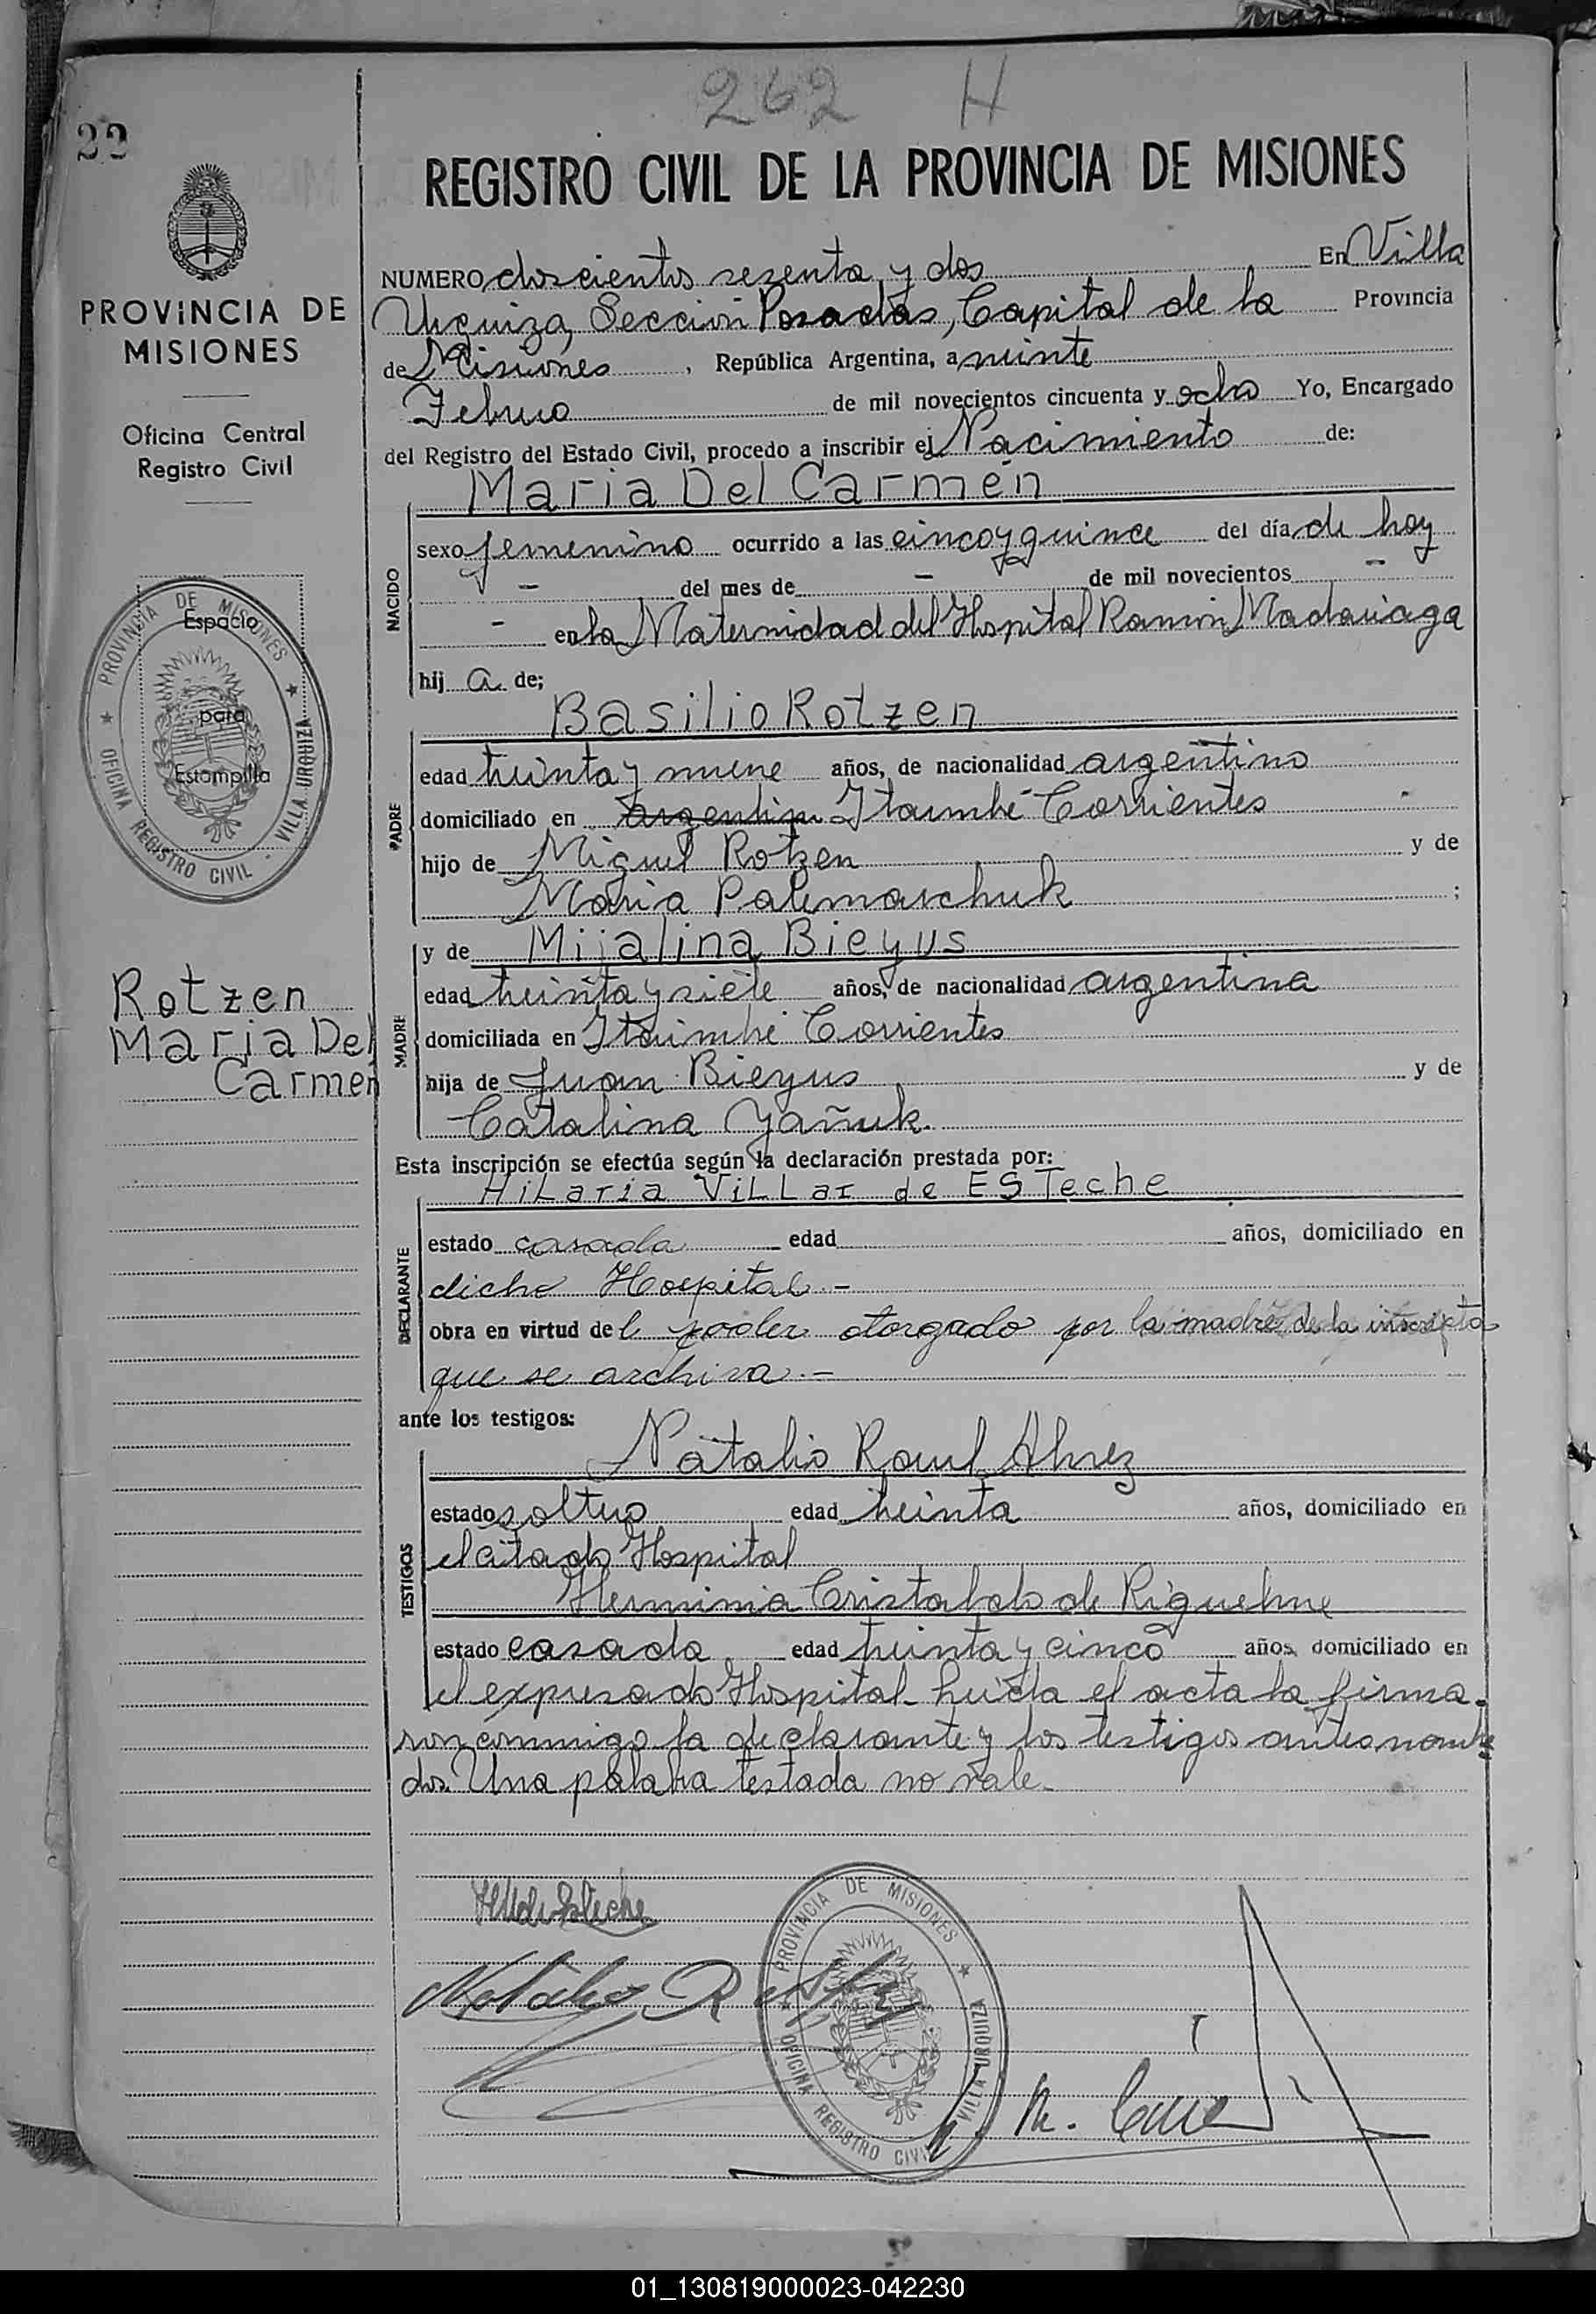 262 H
22
REGISTRO CIVIL DE LA PROVINCIA DE MISIONES
PROVINCIA DE
MISIONES
Oficina Central
Registro Civil
PROVINCIA DE MISIONES
OFICINA REGISTRO CIVIL - VILLA URQUIZA
Espacio
para
Estampilla
Rotzen
Maria Del
Carmen
NUMERO doscientos sesenta y dos En Villa
Urquiza, Sección Posadas, Capital de la Provincia
de Misiones, República Argentina, a veinte
Febrero de mil novecientos cincuenta y ocho Yo, Encargado
del Registro del Estado Civil, procedo a inscribir el Nacimiento de:
Maria Del Carmen
NACIDO
sexo femenino ocurrido a las cinco y quince del día de hoy
- del mes de - de mil novecientos -
- en la Maternidad del Hospital Ramón Madariaga
hij a de;
Basilio Rotzen
PADRE
edad treinta y nueve años, de nacionalidad argentino
domiciliado en argentin Itaimbé Corrientes
hijo de Miguel Rotzen y de
Maria Palemarchuk ;
y de Mijalina Bieyus
MADRE
edad treinta y siete años, de nacionalidad argentina
domiciliada en Itaimbé Corrientes
hija de Juan Bieyus y de
Catalina Yañuk.
Esta inscripción se efectúa según la declaración prestada por:
HiLaria ViLLar de ESTeche
DECLARANTE
estado casada edad años, domiciliado en
dicho Hospital.-
obra en virtud del poder otorgado por la madre de la inscripta
que se archiva.-
ante los testigos:
Natalio Raul Alvez
TESTIGOS
estado soltero edad treinta años, domiciliado en
el citado Hospital
Herminia Cristaldo de Riquelme
estado casada edad treinta y cinco años, domiciliado en
el expresado Hospital- leída el acta la firma-
ron conmigo la declarante y los testigos antes nombra
dos. Una palabra testada no vale.-
PROVINCIA DE MISIONES
OFICINA REGISTRO CIVIL VILLA URQUIZA
01_130819000023-042230